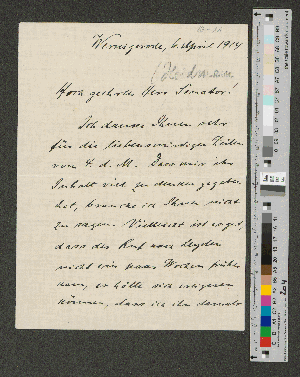 Wernigerode, 6. April 1914
Hoch geehrter Herr Senator!
Ich danke Ihnen sehr
für die liebenswürdigen Zeilen
vom 4. d. M. Dass mir ihr
Inhalt viel zu denken gegeben
hat, brauche ich Ihnen nicht
zu sagen. Vielleicht ist es gut,
dass der Ruf nach Leyden
nicht ein paar Wochen früher
kam, er hätte sich ereignen
können, dass ich ihn damals